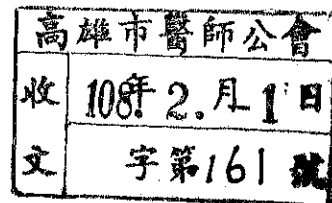 高雄市醫師公會
收文
108年2.月1日
字第161號